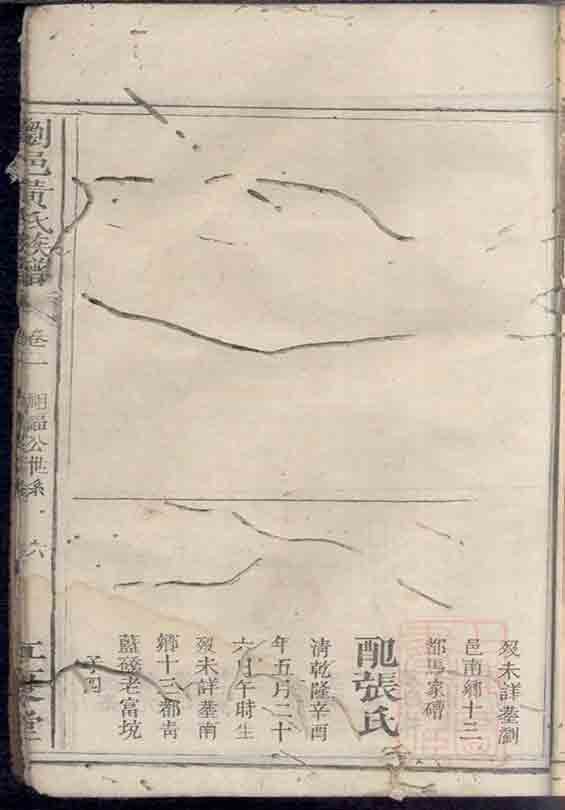 歿未詳葬瀏
邑南鄉十三
都馬家磧
配張氏
清乾隆辛酉
年五月二十
六日午時生
歿未詳葬南
鄉十三都靑
藍磜老富坑
子四
瀏邑黃氏族譜
卷二
朝福公世系
六